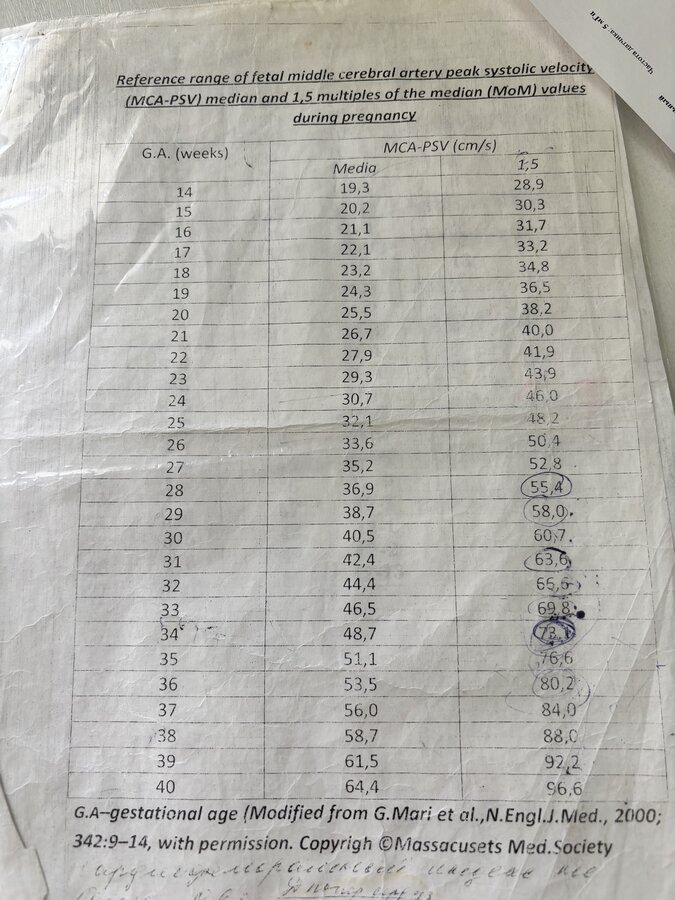 Частота датчика: 5 мГц
Reference range of fetal middle cerebral artery peak systolic velocity
(MCA-PSV) median and 1,5 multiples of the median (MoM) values
during pregnancy
G.A. (weeks) MCA-PSV (cm/s)
Media 1,5
14 19,3 28,9
15 20,2 30,3
16 21,1 31,7
17 22,1 33,2
18 23,2 34,8
19 24,3 36,5
20 25,5 38,2
21 26,7 40,0
22 27,9 41,9
23 29,3 43,9
24 30,7 46,0
25 32,1 48,2
26 33,6 50,4
27 35,2 52,8
28 36,9 55,4
29 38,7 58,0
30 40,5 60,7
31 42,4 63,6
32 44,4 66,6
33 46,5 69,8
34 48,7 73,1
35 51,1 76,6
36 53,5 80,2
37 56,0 84,0
38 58,7 88,0
39 61,5 92,2
40 64,4 96,6
G.A–gestational age (Modified from G.Mari et al.,N.Engl.J.Med., 2000;
342:9–14, with permission. Copyrigh ©Massacusets Med.Society
индекс